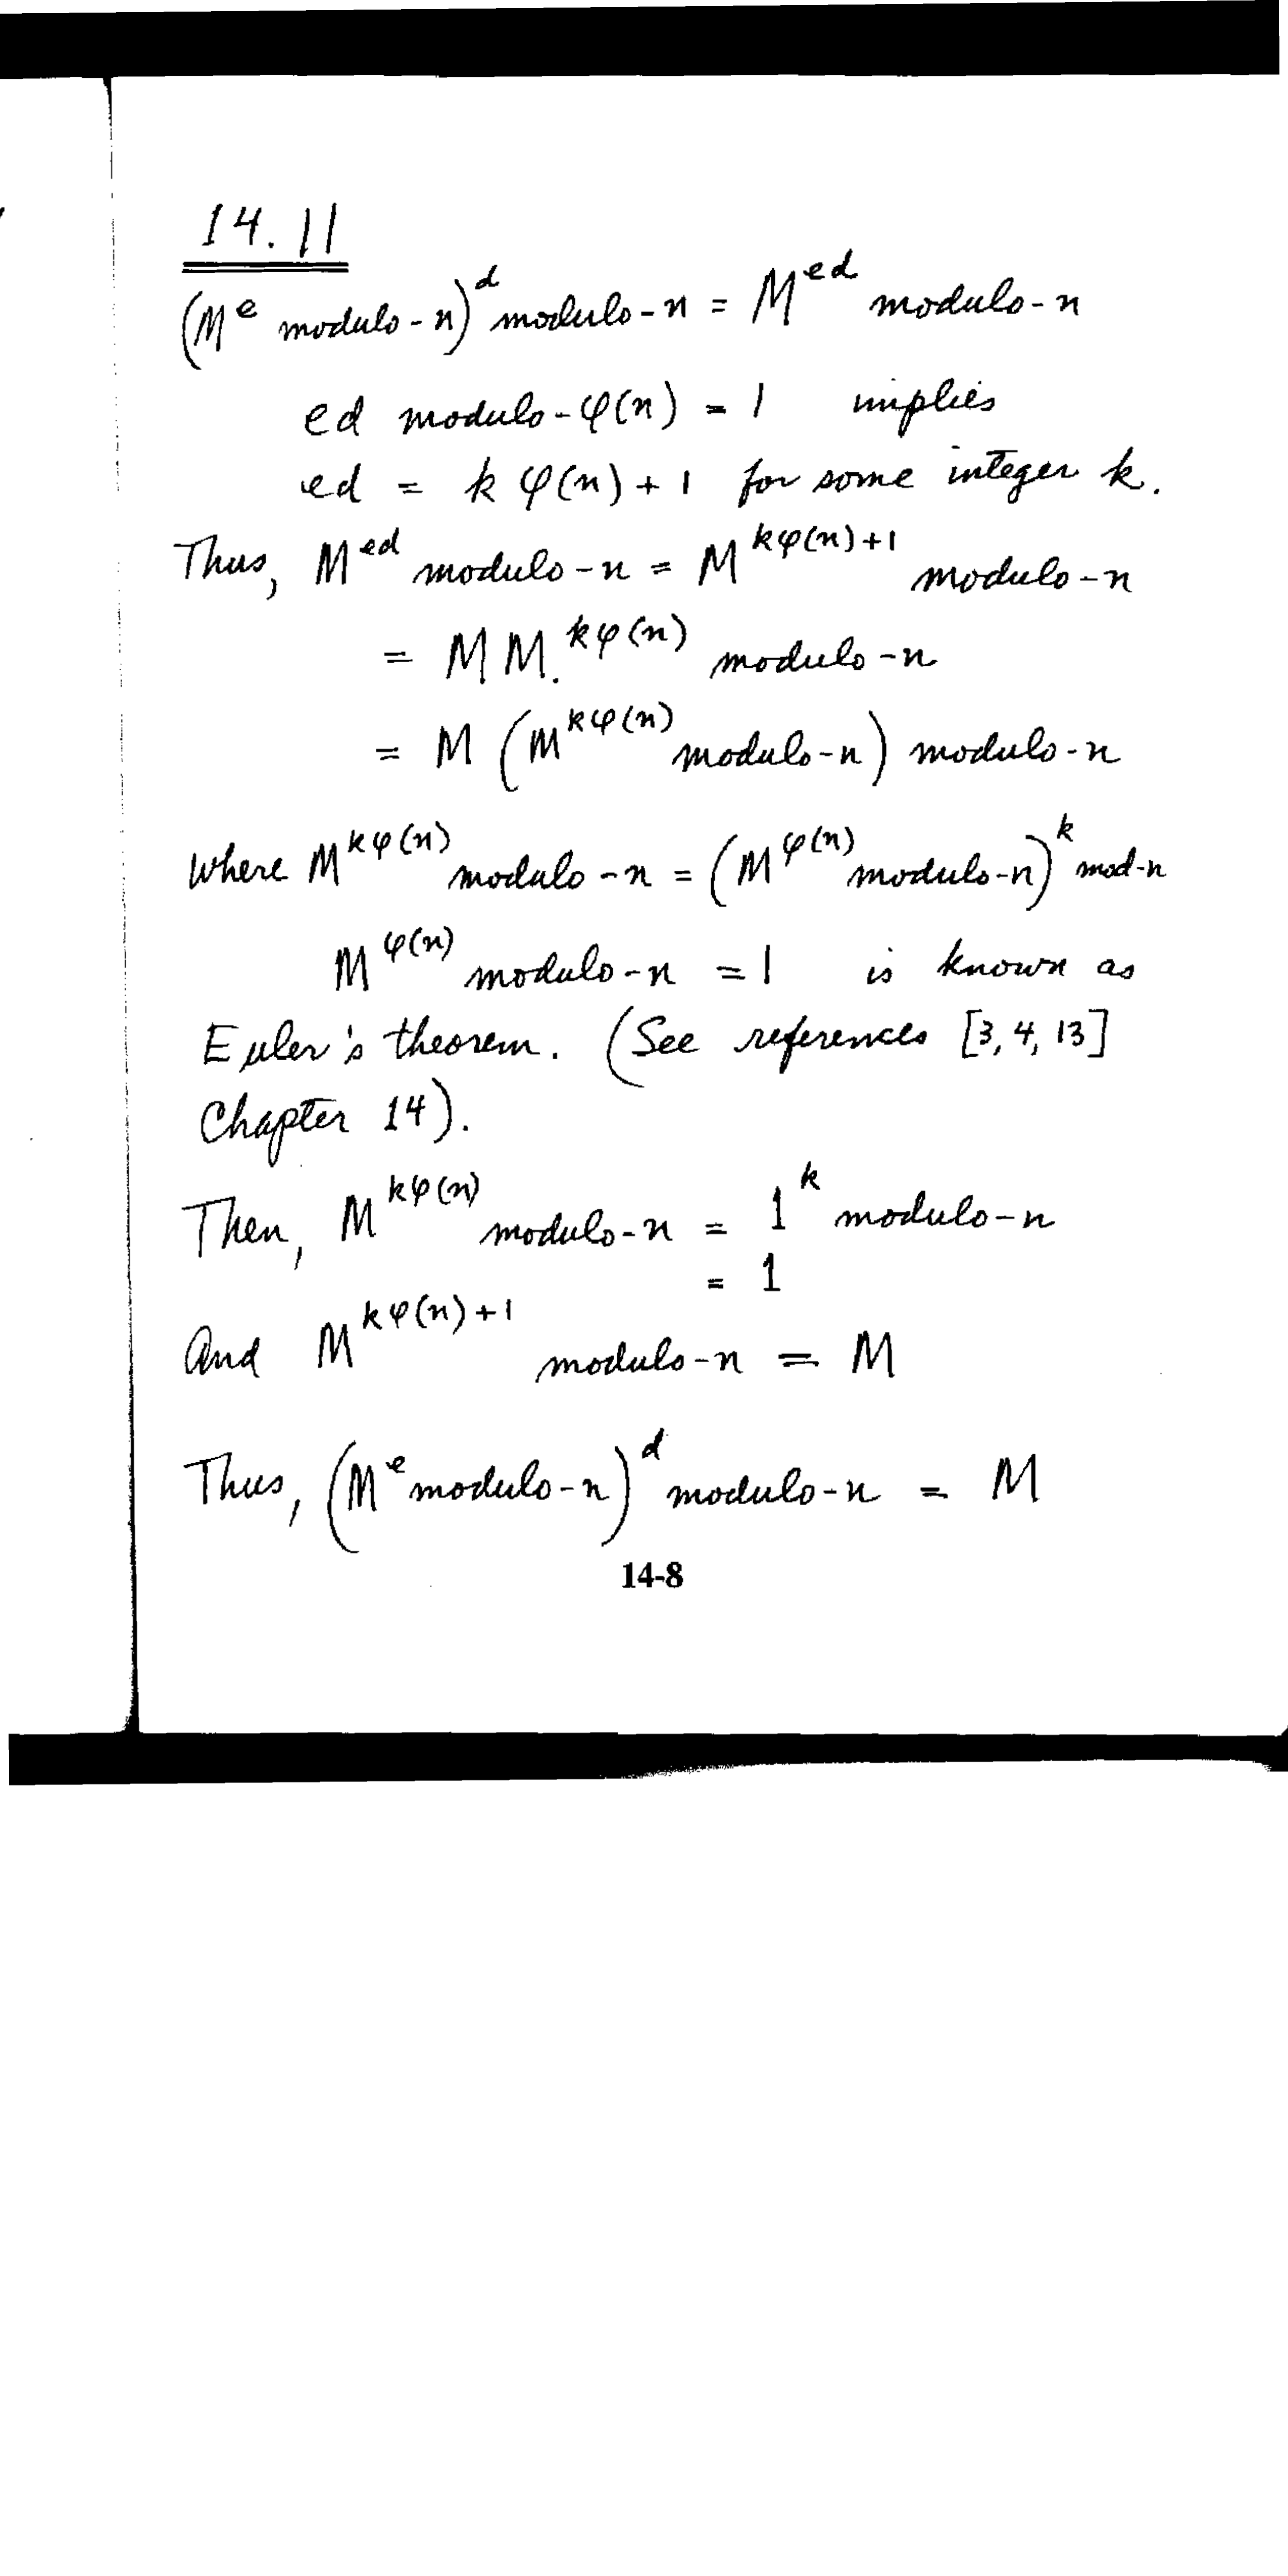 14.11
(M^e modulo-n)^d modulo-n = M^ed modulo-n
ed modulo-φ(n) = 1 implies
ed = k φ(n) + 1 for some integer k.
Thus, M^ed modulo-n = M^kφ(n)+1 modulo-n
= M M^kφ(n) modulo-n
= M (M^kφ(n) modulo-n) modulo-n
Where M^kφ(n) modulo-n = (M^φ(n) modulo-n)^k mod-n
M^φ(n) modulo-n = 1 is known as
Euler's theorem. (See references [3, 4, 13]
Chapter 14).
Then, M^kφ(n) modulo-n = 1^k modulo-n
= 1
And M^kφ(n)+1 modulo-n = M
Thus, (M^e modulo-n)^d modulo-n = M
14-8